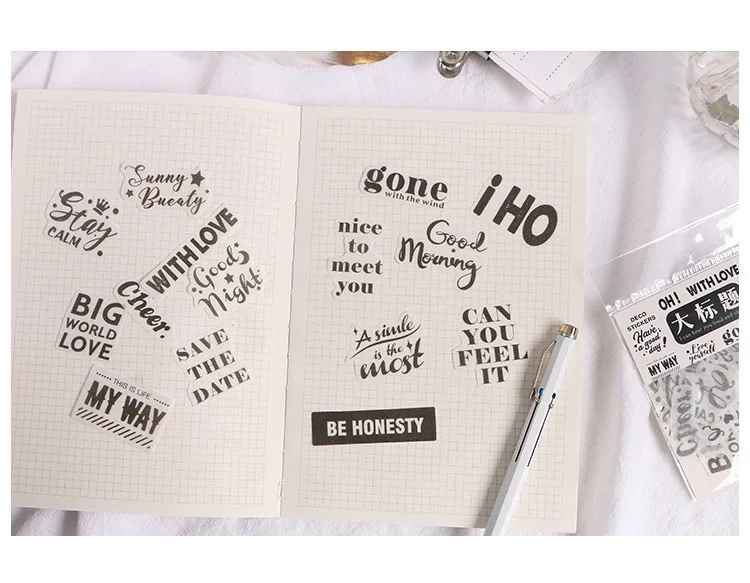 Sunny
Bueaty
Stay
CALM
WITH LOVE
Good
Night
Cheer.
BIG
WORLD
LOVE
SAVE
THE
DATE
THIS IS LIFE
MY WAY
gone
with the wind
iHO
nice
to
meet
you
Good
Morning
A simle
is the
most
CAN
YOU
FEEL
IT
BE HONESTY
OH! WITH LOVE
DECO
STICKERS
大标题
Have
a good
day!
MY WAY
Love
yourself